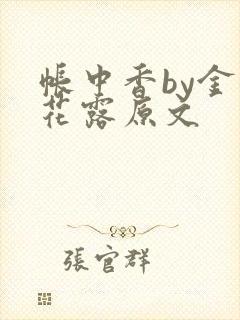 帳中香by金
花露原文
張官群